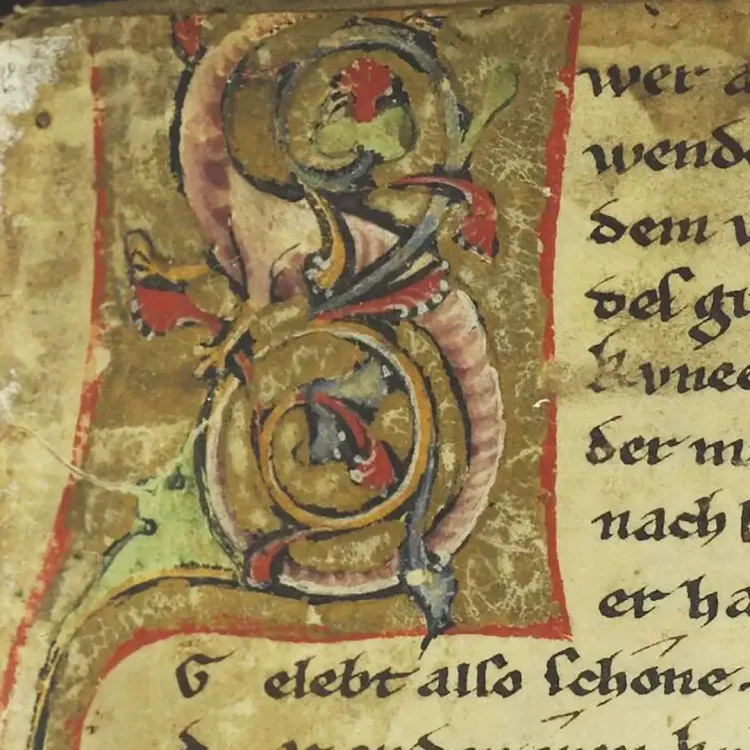 Swer a
wende
dem v
deſ gi
kvnec
der m
nach l
er ha
G elebt alſo ſchone.